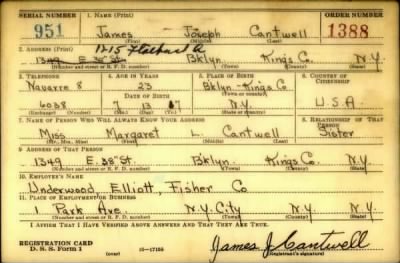 SERIAL NUMBER 1. NAME (Print) ORDER NUMBER
951 James Joseph Cantwell 1388
(First) (Middle) (Last)
2. ADDRESS (Print) 1215 Flatbush A
1349 E. 38th St. Bklyn Kings Co N.Y.
(Number and street or R. F. D. number) (Town) (County) (State)
3. TELEPHONE 4. AGE IN YEARS 5. PLACE OF BIRTH 6. COUNTRY OF CITIZENSHIP
Navarre 8 23 Bklyn Kings Co
DATE OF BIRTH (Town) (County)
6038 7 13 17 N.Y. U.S.A.
(Exchange) (Number) (Mo.) (Day) (Yr.) (State or country)
7. NAME OF PERSON WHO WILL ALWAYS KNOW YOUR ADDRESS 8. RELATIONSHIP OF THAT PERSON
Miss Margaret L. Cantwell Sister
(Mr., Mrs., Miss) (First) (Middle) (Last)
9. ADDRESS OF THAT PERSON
1349 E. 38th St. Bklyn. Kings Co. N.Y.
(Number and street or R. F. D. number) (Town) (County) (State)
10. EMPLOYER'S NAME
Underwood, Elliott, Fisher Co
11. PLACE OF EMPLOYMENT OR BUSINESS
1 Park Ave. N.Y. City N.Y. N.Y.
(Number and street or R. F. D. number) (Town) (County) (State)
I AFFIRM THAT I HAVE VERIFIED ABOVE ANSWERS AND THAT THEY ARE TRUE.
REGISTRATION CARD
D. S. S. FORM 1 (over) 16—17105 James J Cantwell
(Registrant's signature)